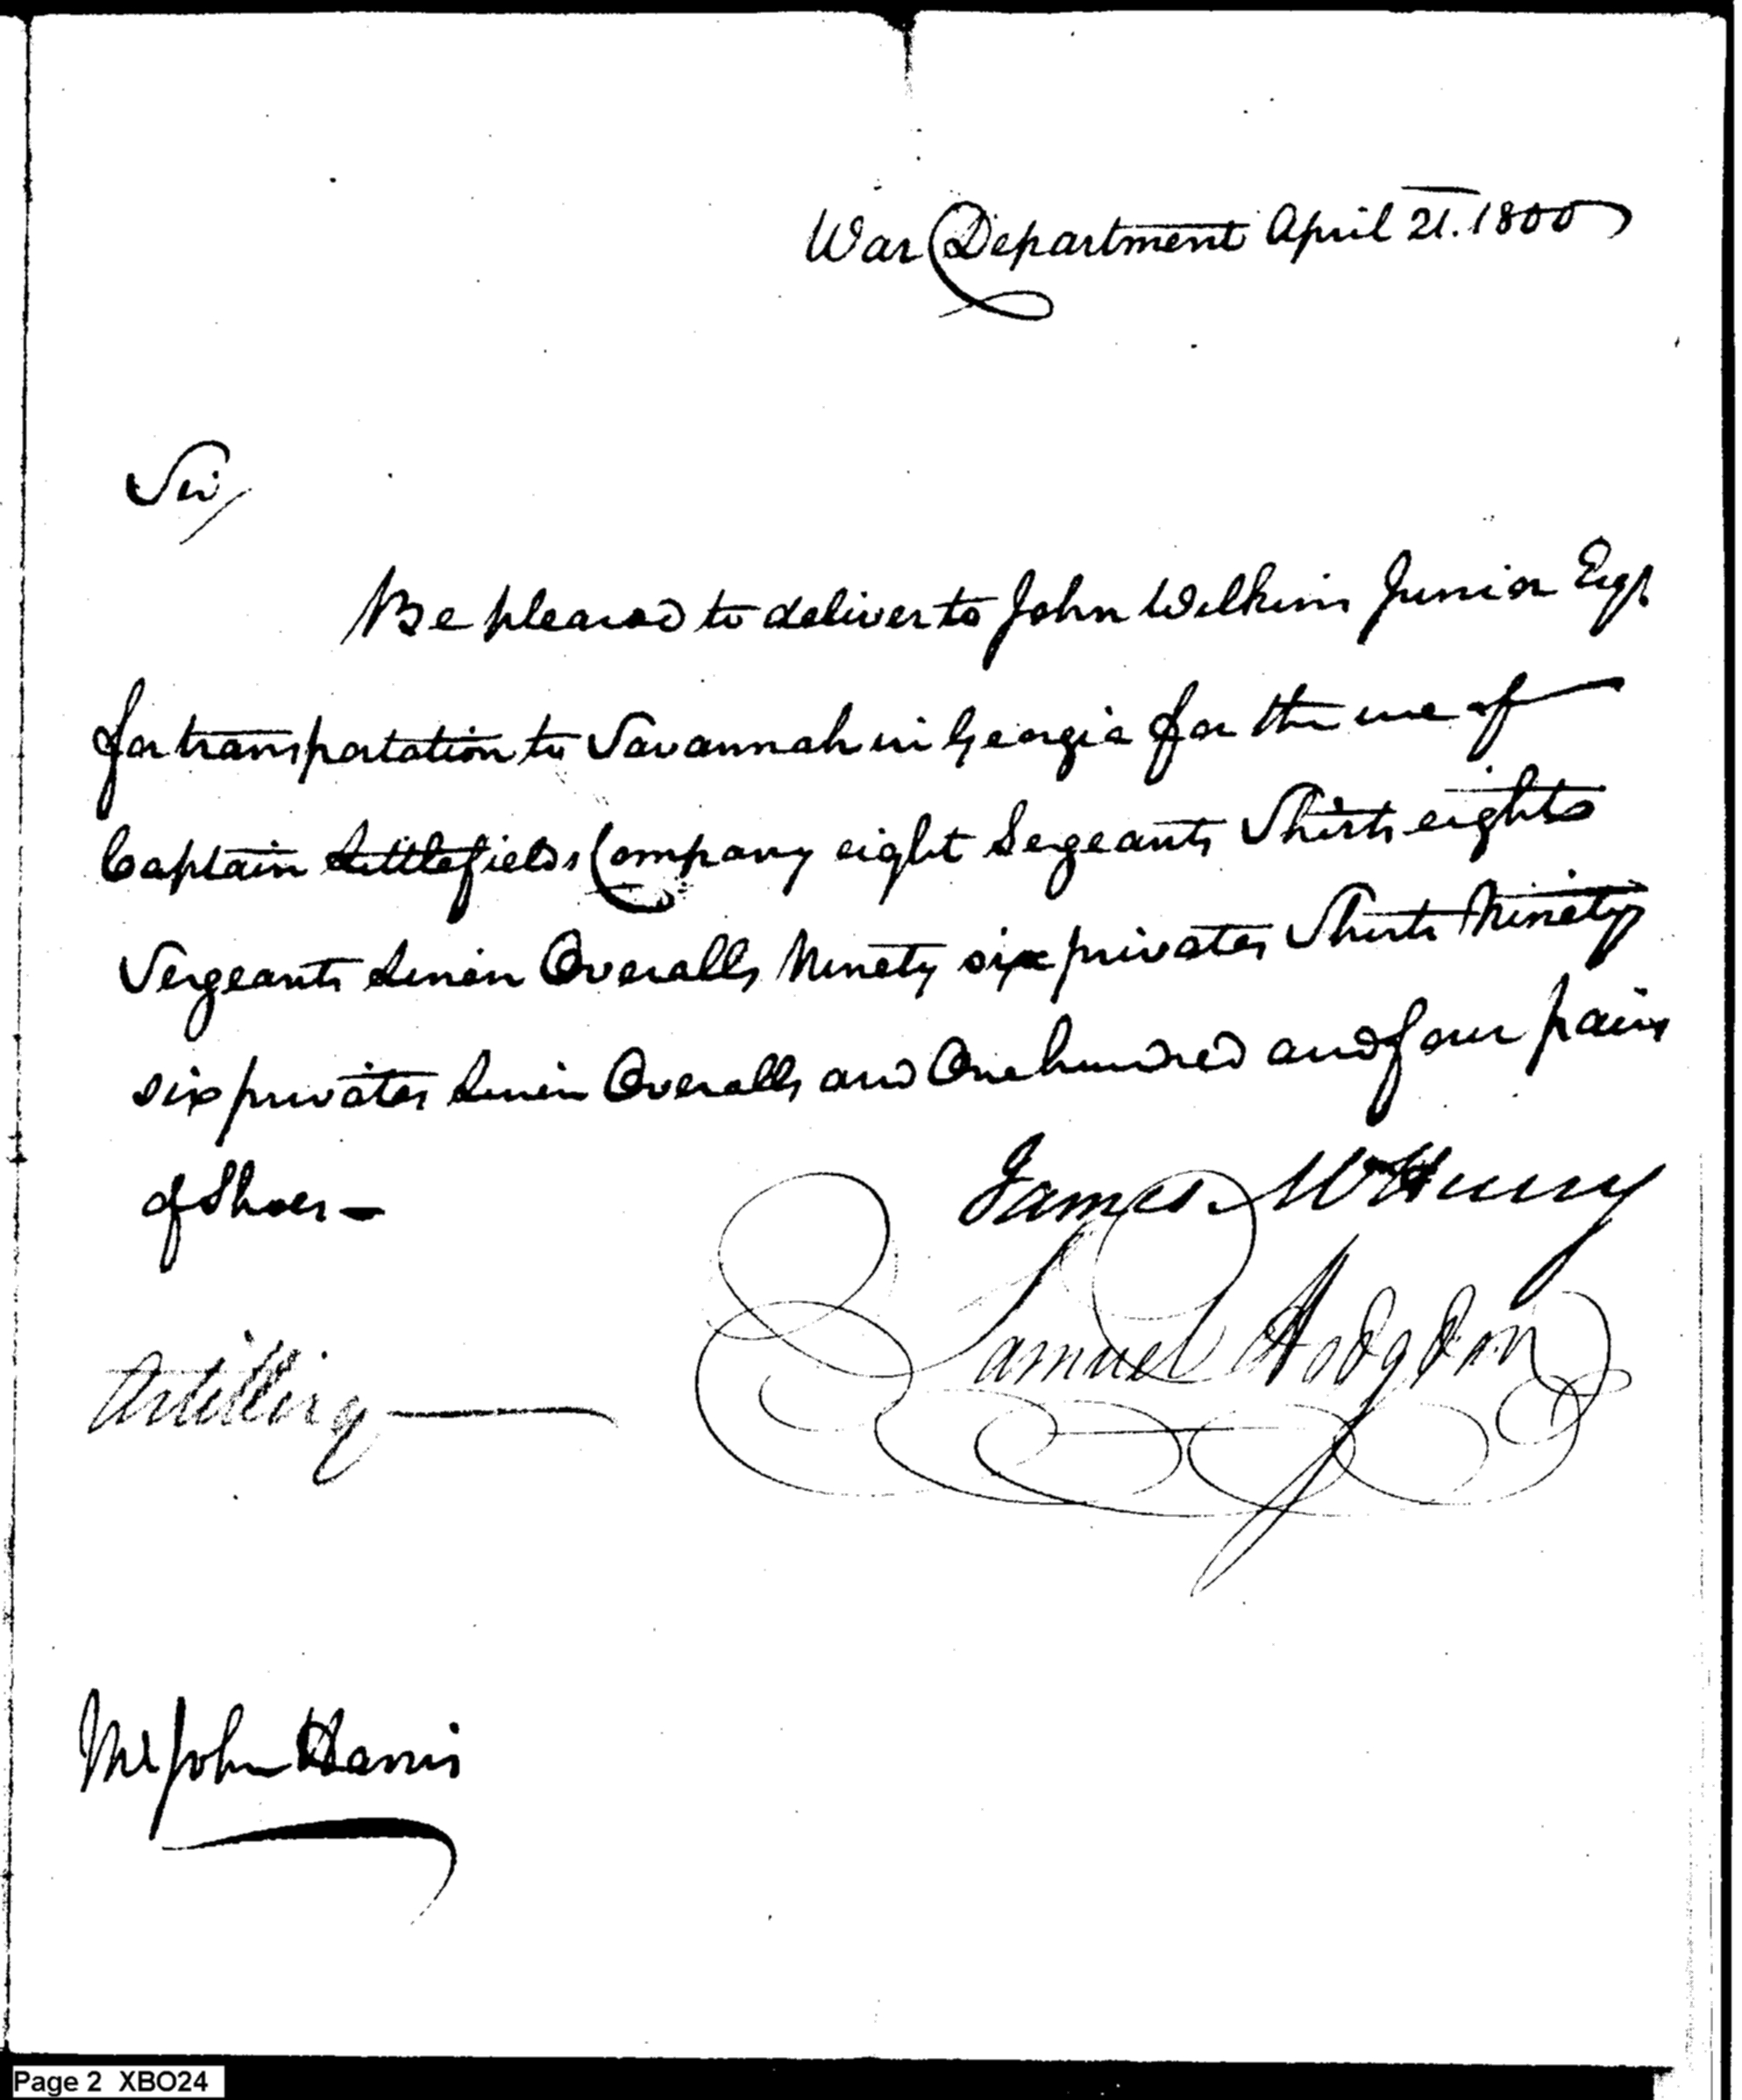 War Department April 21. 1800
Sir
Be pleased to deliver to John Wilkins Junior Esqr
for transportation to Savannah in Georgia for the use of
Captain Littlefields Company eight Sergeants Shirts eight
Sergeants Linen Overalls Ninety six privates Shirts Ninety
six privates Linen Overalls and One hundred and four pairs
of Shoes —
James McHenry
Samuel Hodgdon
Artillery
Mr John Harris
Page 2 XBO24